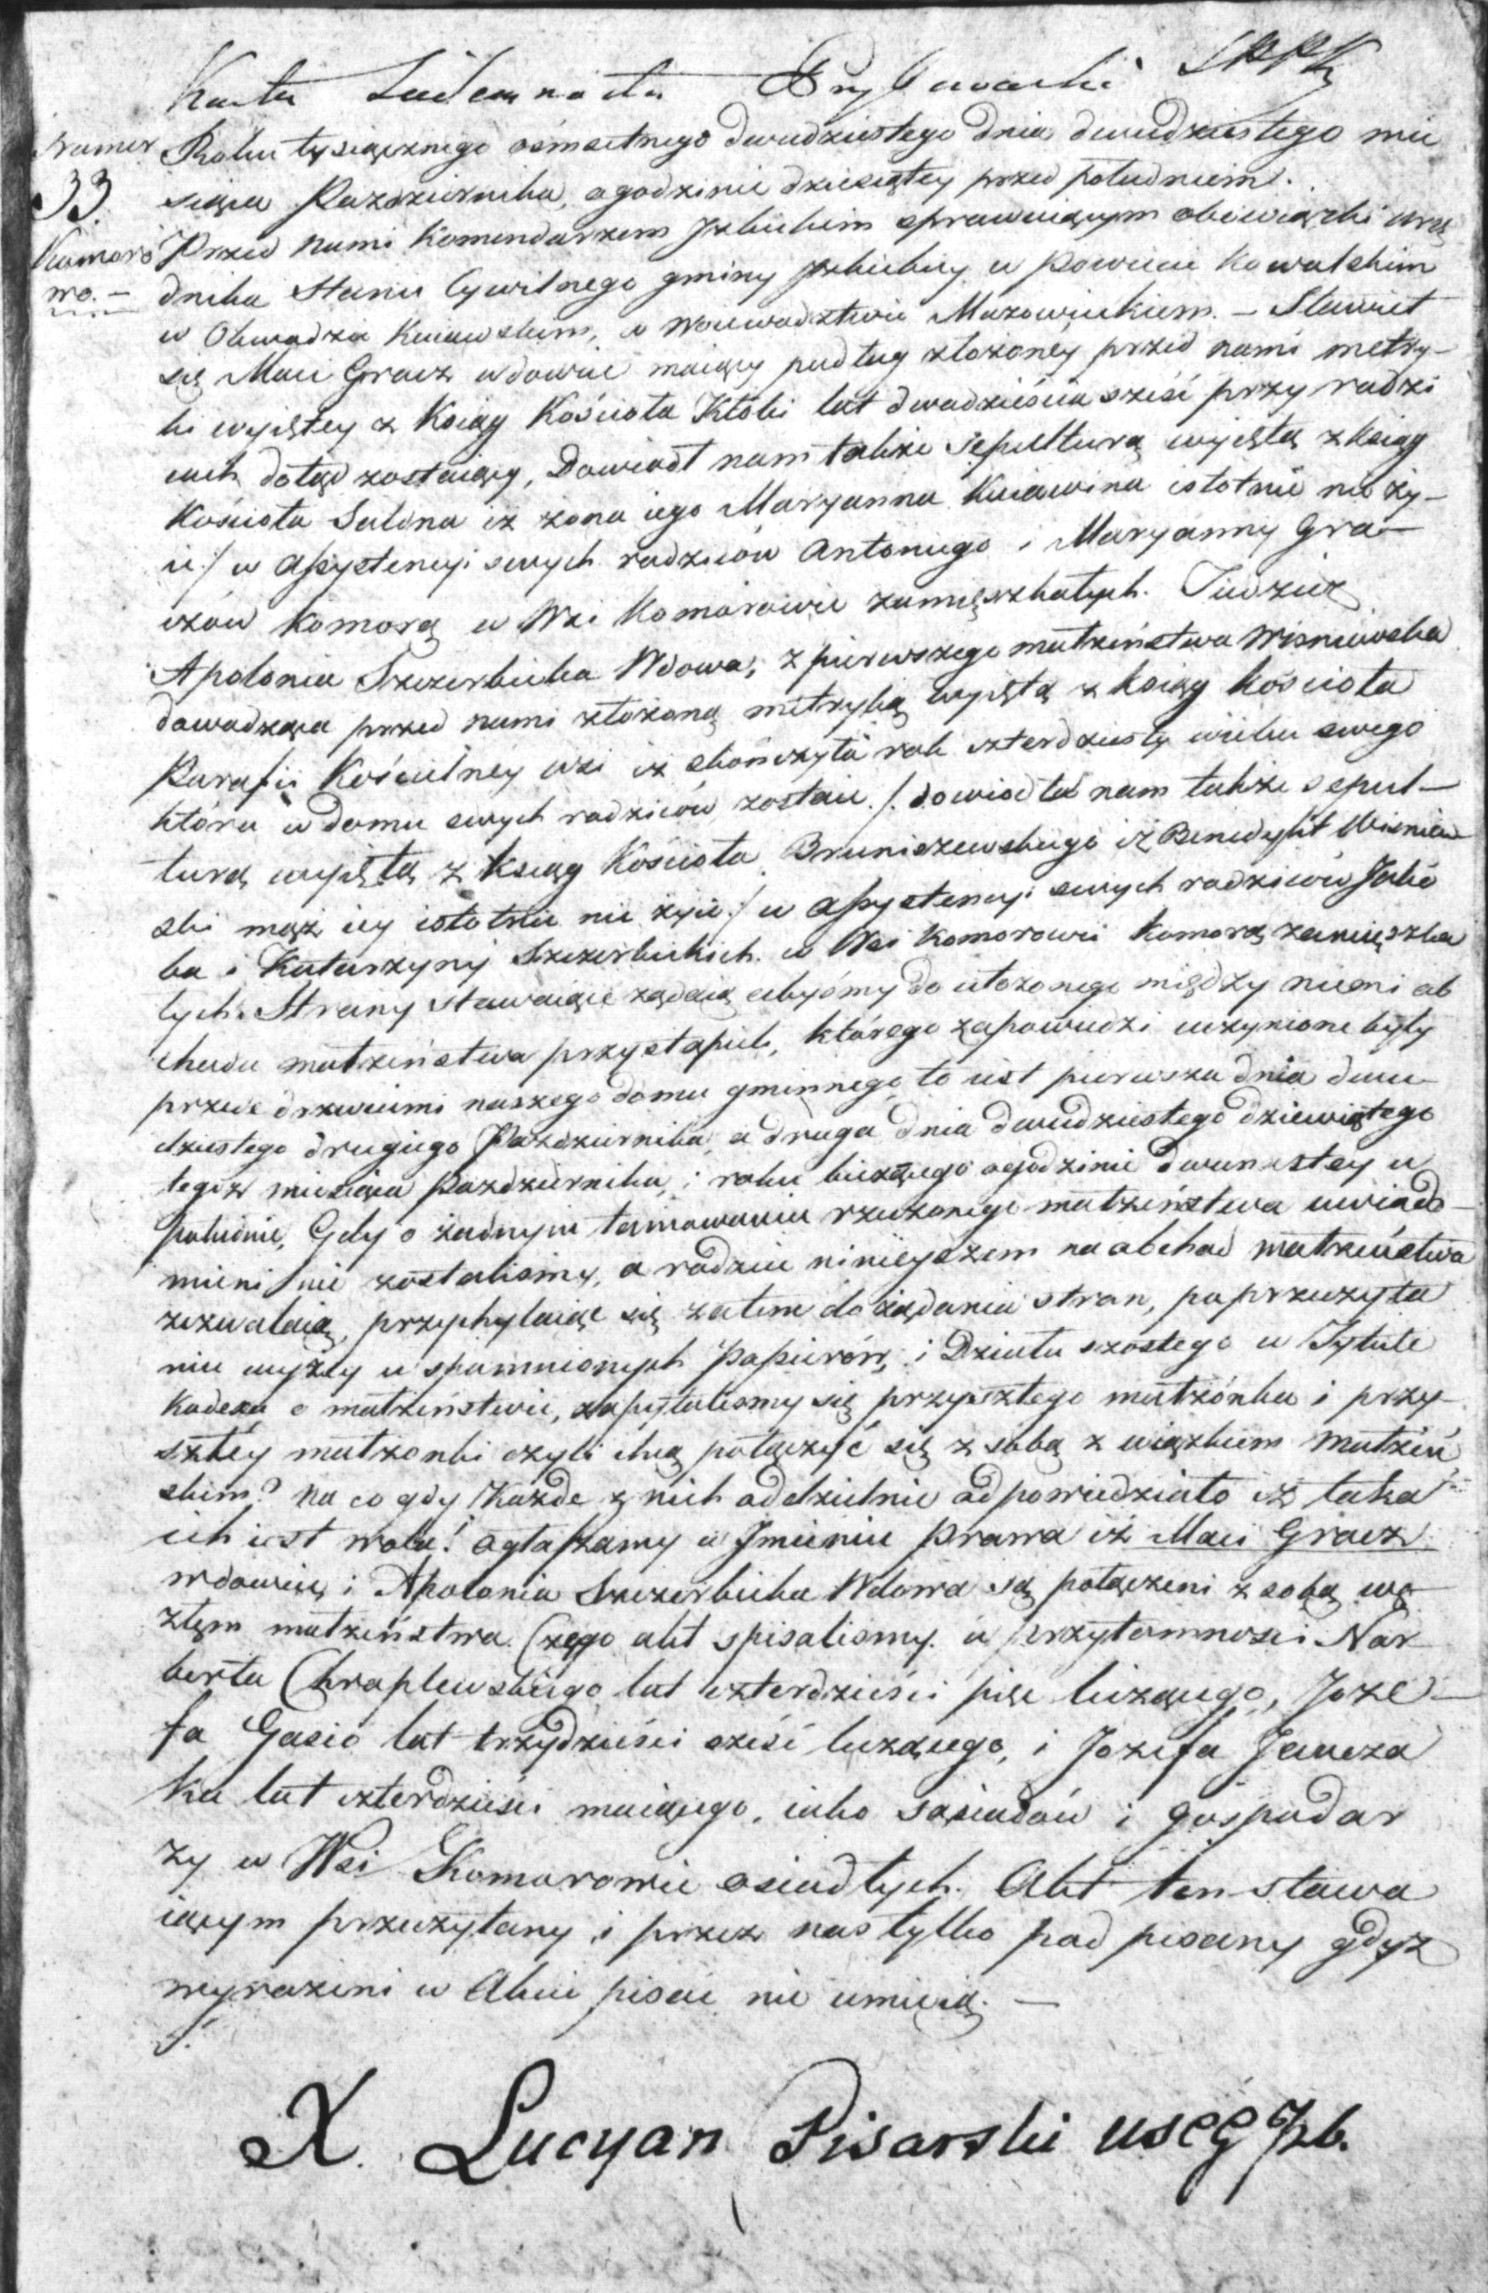 Karta
Numer
33.
Komoro
wo. —
Roku tysiącznego osmsetnego dwudziestego dnia dwudziestego mie
siąca Pazdziernika, o godzinie dziesiątey przed południem.
Przed nami Komendarzem Jzbickim sprawuiącym obowiązki urzę
dnika Stanu Cywilnego gminy Jzbickiey w Powiecie Kowalskim
w Obwodzie Kuiawskim, w Woiewodztwie Mazowieckiem. — Stawieł
się Maci Gracz wdowiec maiący podług złożoney przed nami metry-
ki wyiętey z Ksiąg Kościoła Kłobi lat dwadzieścia sześć przy rodzi
cach dotąd zostaiący, Dowiodł nam także sepulturą wyiętą z ksiąg
Kościoła Salona iż żona iego Maryanna Kuiawina istotnie nie ży-
ie ./ w assystencyi swych rodziców Antoniego i Maryanny Gra-
czów komorą w Wsi Komorowie zamięszkałych. Tudzież
Apolonia Szczerbicka Wdowa, z pierwszego małżeństwa Wisniewska
dowodząca przed nami złożoną metryką wyiętą z ksiąg kościoła
Parafii Kościelney wsi iż skończyła rok czterdziesty wieku swego
która w domu swych rodziców zostaie ./. dowiodła nam także sepul-
turą wyiętą z Ksiąg Kościoła Bruniszewskiego iż Benedykt Wisniew
ski mąż iey istotnie nie żyie ./ w assystencyi swych rodziców Jakó
ba i Katarzyny Szczerbickich w Wsi Komorowie komorą zamięszka
łych. Strony stawaiące żądaią abyśmy do ułożonego między niemi ob
chodu małżeństwa przystąpili, którego zapowiedzi uczynione były
przede drzwiami naszego domu gminnego to iest pierwsza dnia dwu-
dziestego drugiego Pazdziernika a druga dnia dwudziestego dziewiątego
tegoż miesiąca Pazdziernika, i roku bieżącego o godzinie dwunastey w
południe, Gdy o żadnym tamowaniu rzeczonego małżeństwa uwiado-
mieni nie zostalismy, a rodzice ninieyszem na obchod małżeństwa
zezwalaią, przychylaiąc się zatem do żądania stron, po przeczyta
niu wyżey w spomnionych Papierów, i Działu szóstego w Tytule
Kodexu o małżeństwie, zapytalismy się przyszłego małżonka i przy-
szłey małżonki czyli chcą połączyć się z sobą z wiązkiem małżeń
skim? na co gdy Każde z nich oddzielnie odpowiedziało iż taka
ich iest wola! ogłaszamy w Jmieniu Prawa iż Maci Gracz
wdowiec i Apolonia Szczerbicka Wdowa są połączeni z sobą wę-
złem małżeństwa. Czego akt spisalismy w przytomności Nor-
berta Chraplewskiego lat czterdzieści pięć liczącego, Joze-
fa Gasio lat trzydzieści sześć liczącego, i Jozefa Jancza
ka lat czterdzieści maiącego, iako sąsiadów i gospodar
zy w Wsi Komorowie osiadłych. Akt ten stawa
iącym przeczytany i przez nas tylko pod pisany gdyż
wyrażeni w Akcie pisać nie umieią. —
X. Lucyan Pisarski